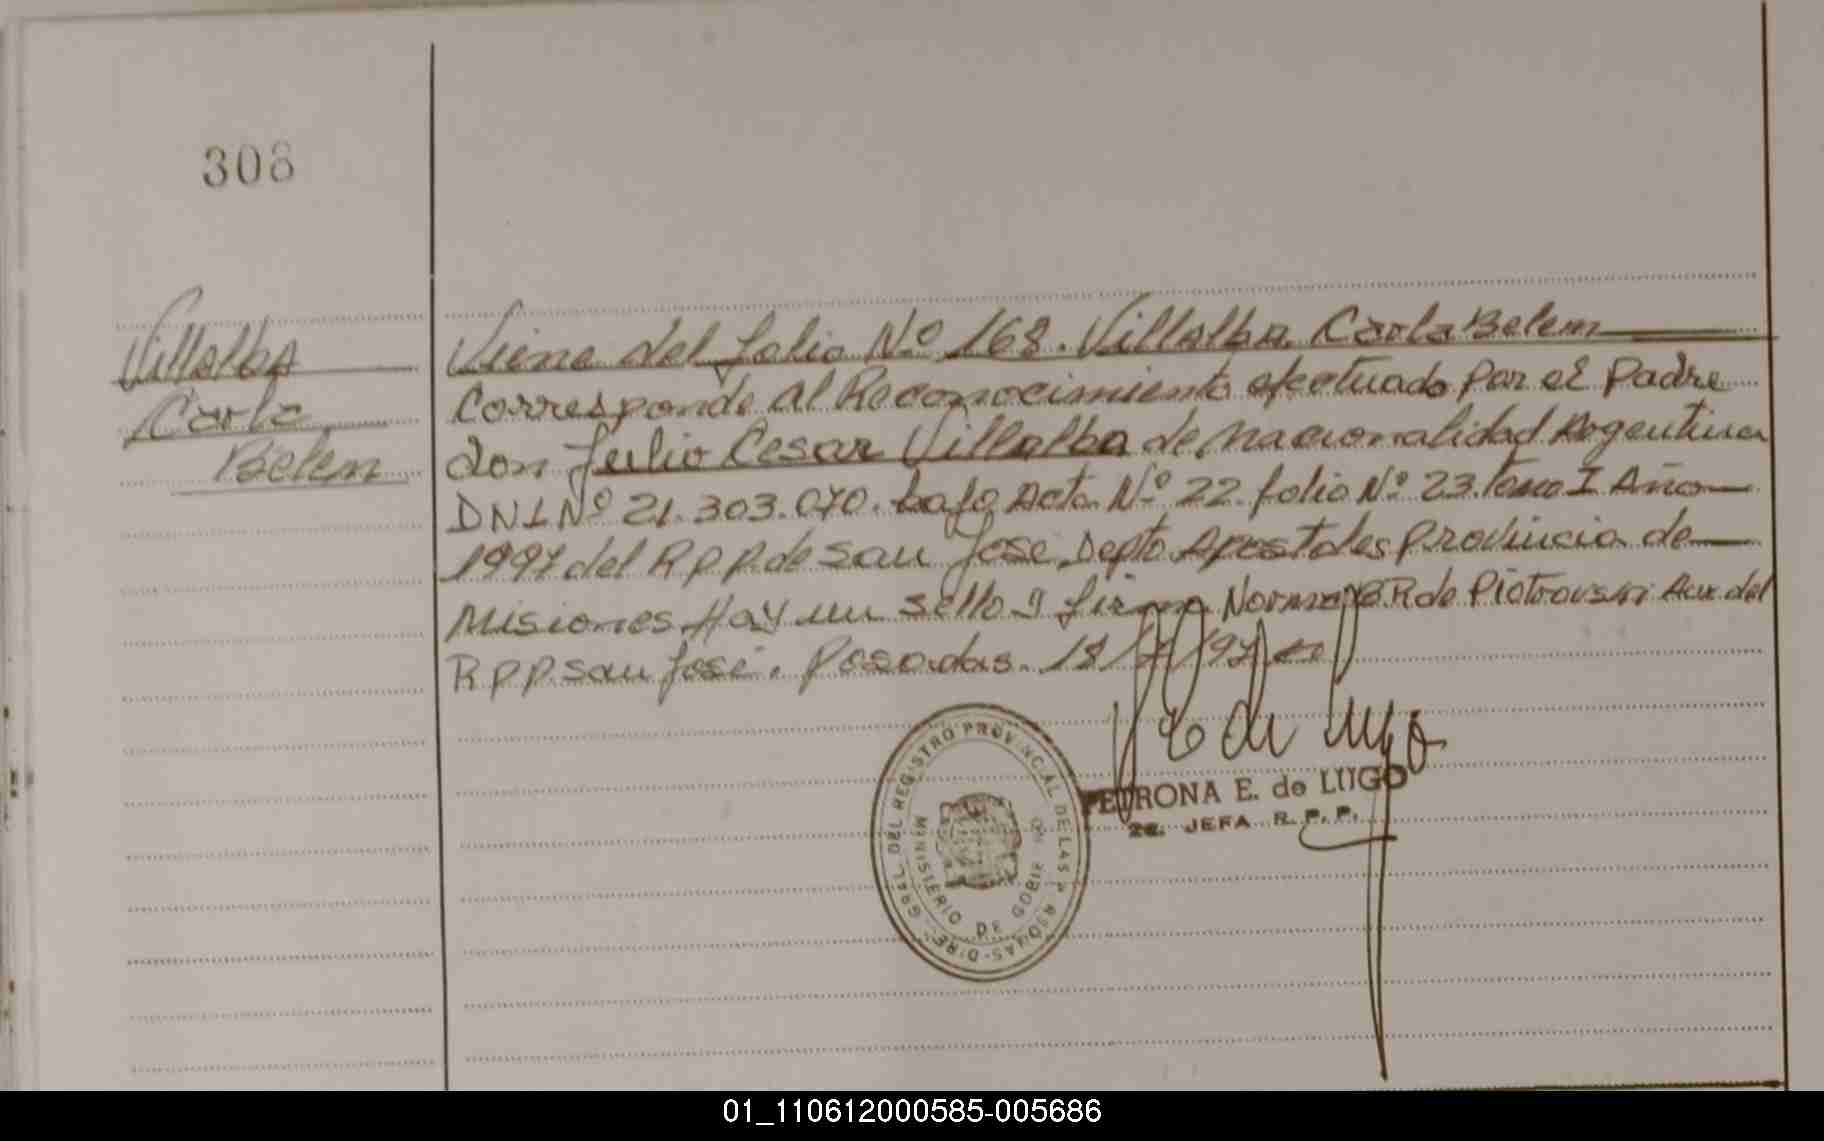 308
Villalba
Carla
Belem
Viene del folio Nº 168. Villalba, Carla Belem
Corresponde al Reconocimiento efectuado por el padre
don Julio Cesar Villalba de nacionalidad Argentina
DNI Nº 21.303.070. bajo Acta Nº 22 folio Nº 23. tomo I Año
1997 del R p p. de san Jose, Depto Apostoles provincia de
Misiones Hay un sello y firma Norma B. R de Piotrouski Aux. del
R p p. san José. Posadas. 18/ /97
PETRONA E. de LUGO
2a. JEFA R. P. P.
DIREC. GRAL. DEL REGISTRO PROVINCIAL DE LAS PERSONAS
MINISTERIO DE GOBIERNO
01_110612000585-005686